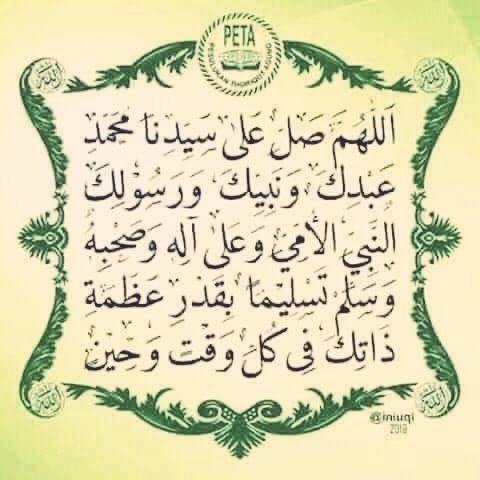 PETA
PESULUKAN THORIQOT AGUNG
اَللّٰهُمَّ صَلِّ عَلٰى سَيِّدِنَا مُحَمَّدٍ
عَبْدِكَ وَنَبِيِّكَ وَرَسُوْلِكَ
النَّبِيِّ الْأُمِّيِّ وَعَلٰى آلِهِ وَصَحْبِهِ
وَسَلِّمْ تَسْلِيْمًا بِقَدْرِ عَظَمَةِ
ذَاتِكَ فِى كُلِّ وَقْتٍ وَحِيْنٍ
@iniuqi
2018